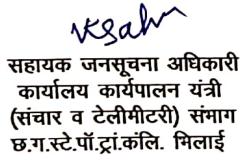 vksahu
सहायक जनसूचना अधिकारी
कार्यालय कार्यपालन यंत्री
(संचार व टेलीमीटरी) संभाग
छ.ग.स्टे.पॉ.ट्रां.कंलि. भिलाई